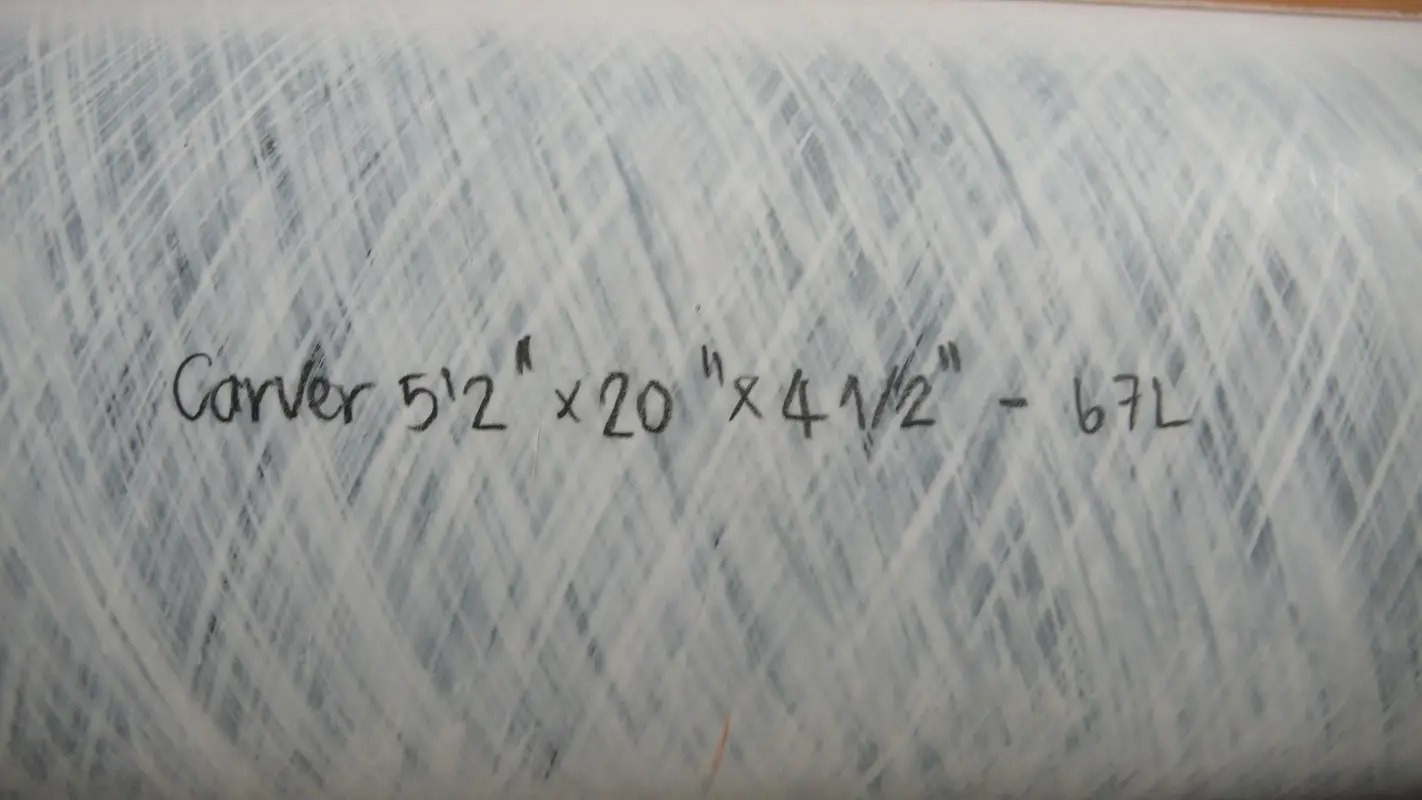 Carver 5'2" x 20" x 4 1/2" - 67L